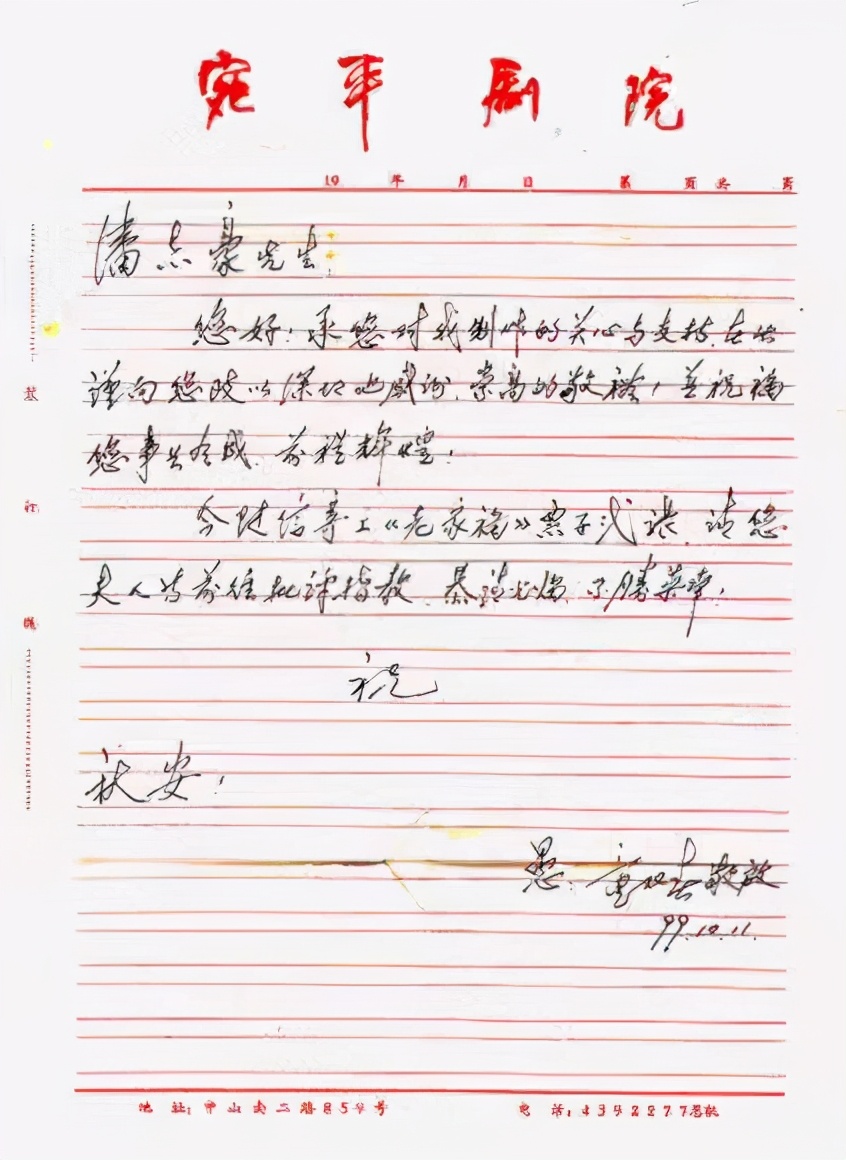 宛平剧院
19 年 月 日 第 页共 页
潘志豪先生:
您好!承您对我剧作的关心与支持,在此
谨向您致以深切地感谢、崇高的敬礼!并祝福
您事业有成、前程辉煌!
今随信寄上《老家福》票子弍张,请您
夫人前往批评指教,恭请光临、不胜荣幸!
祝
秋安!
愚: 敬启
99.10.11.
装
订
线
地 址:中山 二路859号
电 话:4392277